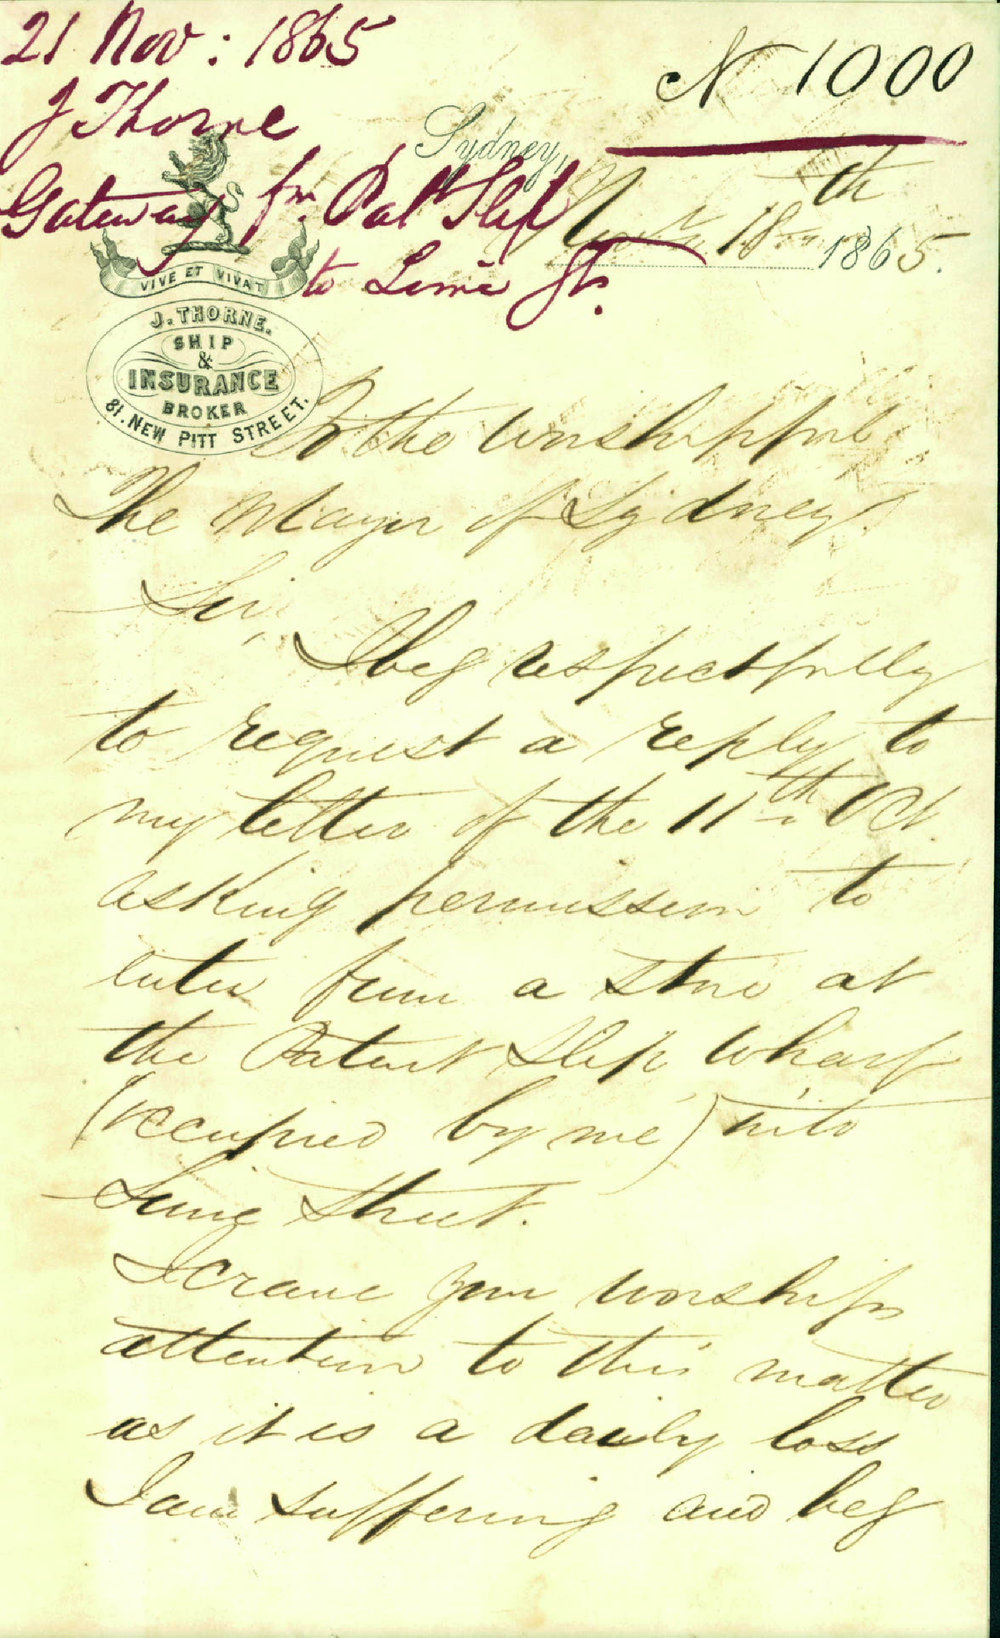 21 Nov: 1865
No 1000
J Thorne
Gateway fm. Pat Slip
to Lime St.
Sydney, Nov 18th 1865.
VIVE ET VIVAT
J. THORNE.
SHIP
&
INSURANCE
BROKER
81. NEW PITT STREET.
To the worshipful
The Mayor of Sydney.
Sir,
I beg respectfully
to request a reply to
my letter of the 11th Oct.
asking permission to
enter from a store at
the Patent Slip Wharf
(occupied by me) into
Lime Street.
I crave your worships
attention to this matter
as it is a daily loss
I am suffering and beg